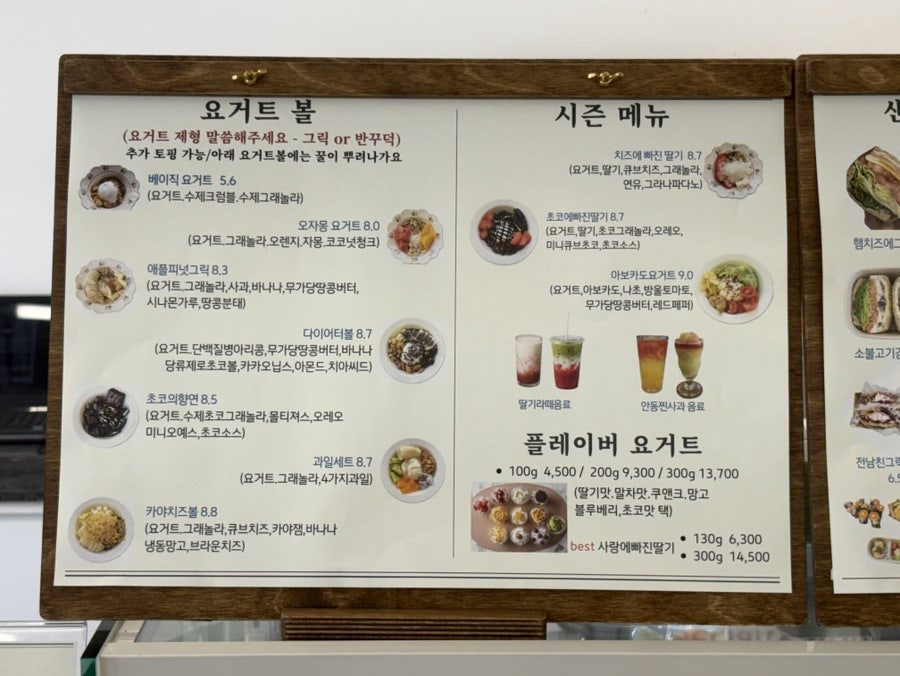 요거트 볼
(요거트 제형 말씀해주세요 - 그릭 or 반꾸덕)
추가 토핑 가능/아래 요거트볼에는 꿀이 뿌려나가요
베이직 요거트 5.6
(요거트.수제크럼블.수제그래놀라)
오자몽 요거트 8.0
(요거트.그래놀라.오렌지,자몽.코코넛청크)
애플피넛그릭 8.3
(요거트,그래놀라,사과,바나나,무가당땅콩버터,
시나몬가루,땅콩분태)
다이어터볼 8.7
(요거트.단백질병아리콩,무가당땅콩버터,바나나
당류제로초코볼,카카오닙스,아몬드,치아씨드)
초코의향연 8.5
(요거트,수제초코그래놀라,몰티져스,오레오
미니오예스,초코소스)
과일세트 8.7
(요거트,그래놀라,4가지과일)
카야치즈볼 8.8
(요거트,그래놀라,큐브치즈,카야잼,바나나
냉동망고,브라운치즈)
시즌 메뉴
치즈에 빠진 딸기 8.7
(요거트,딸기,큐브치즈,그래놀라,
연유,그라나파다노)
초코에빠진딸기 8.7
(요거트,딸기,초코그래놀라,오레오,
미니큐브초코,초코소스)
아보카도요거트 9.0
(요거트,아보카도,나초,방울토마토,
무가당땅콩버터,레드페퍼)
딸기라떼음료
안동찐사과 음료
플레이버 요거트
• 100g 4,500 / 200g 9,300 / 300g 13,700
(딸기맛.말차맛.쿠앤크.망고
블루베리,초코맛 택)
best 사랑에빠진딸기
• 130g 6,300
• 300g 14,500
햄치즈에그
소불고기김
전남친그릭
6.5